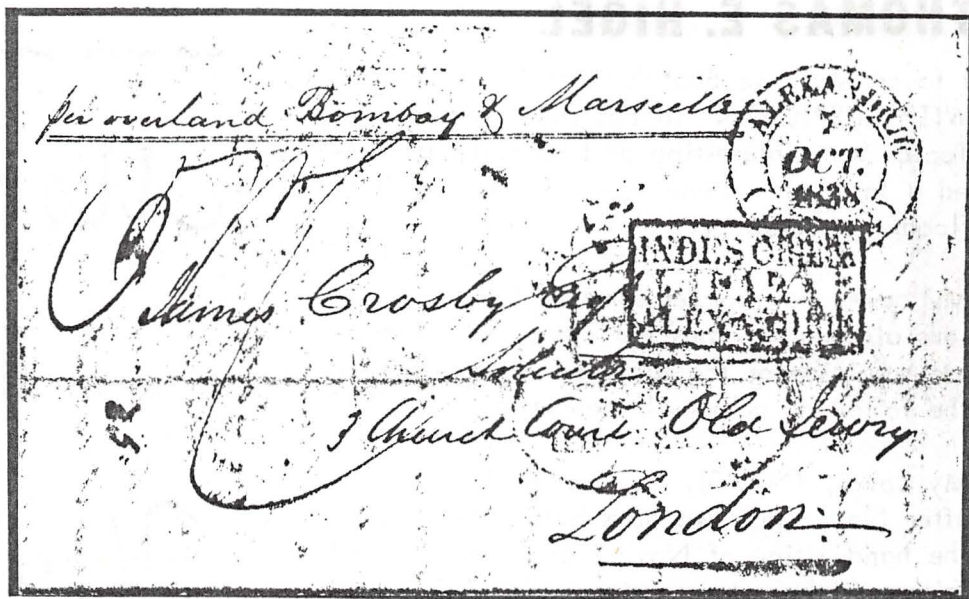 per overland Bombay & Marseilles
ALEXANDRIE
7
OCT.
1838
INDES ORIENT
PAR
ALEXANDRIE
James Crosby Esq
Solicitor
3 Church Court Old Jewry
London